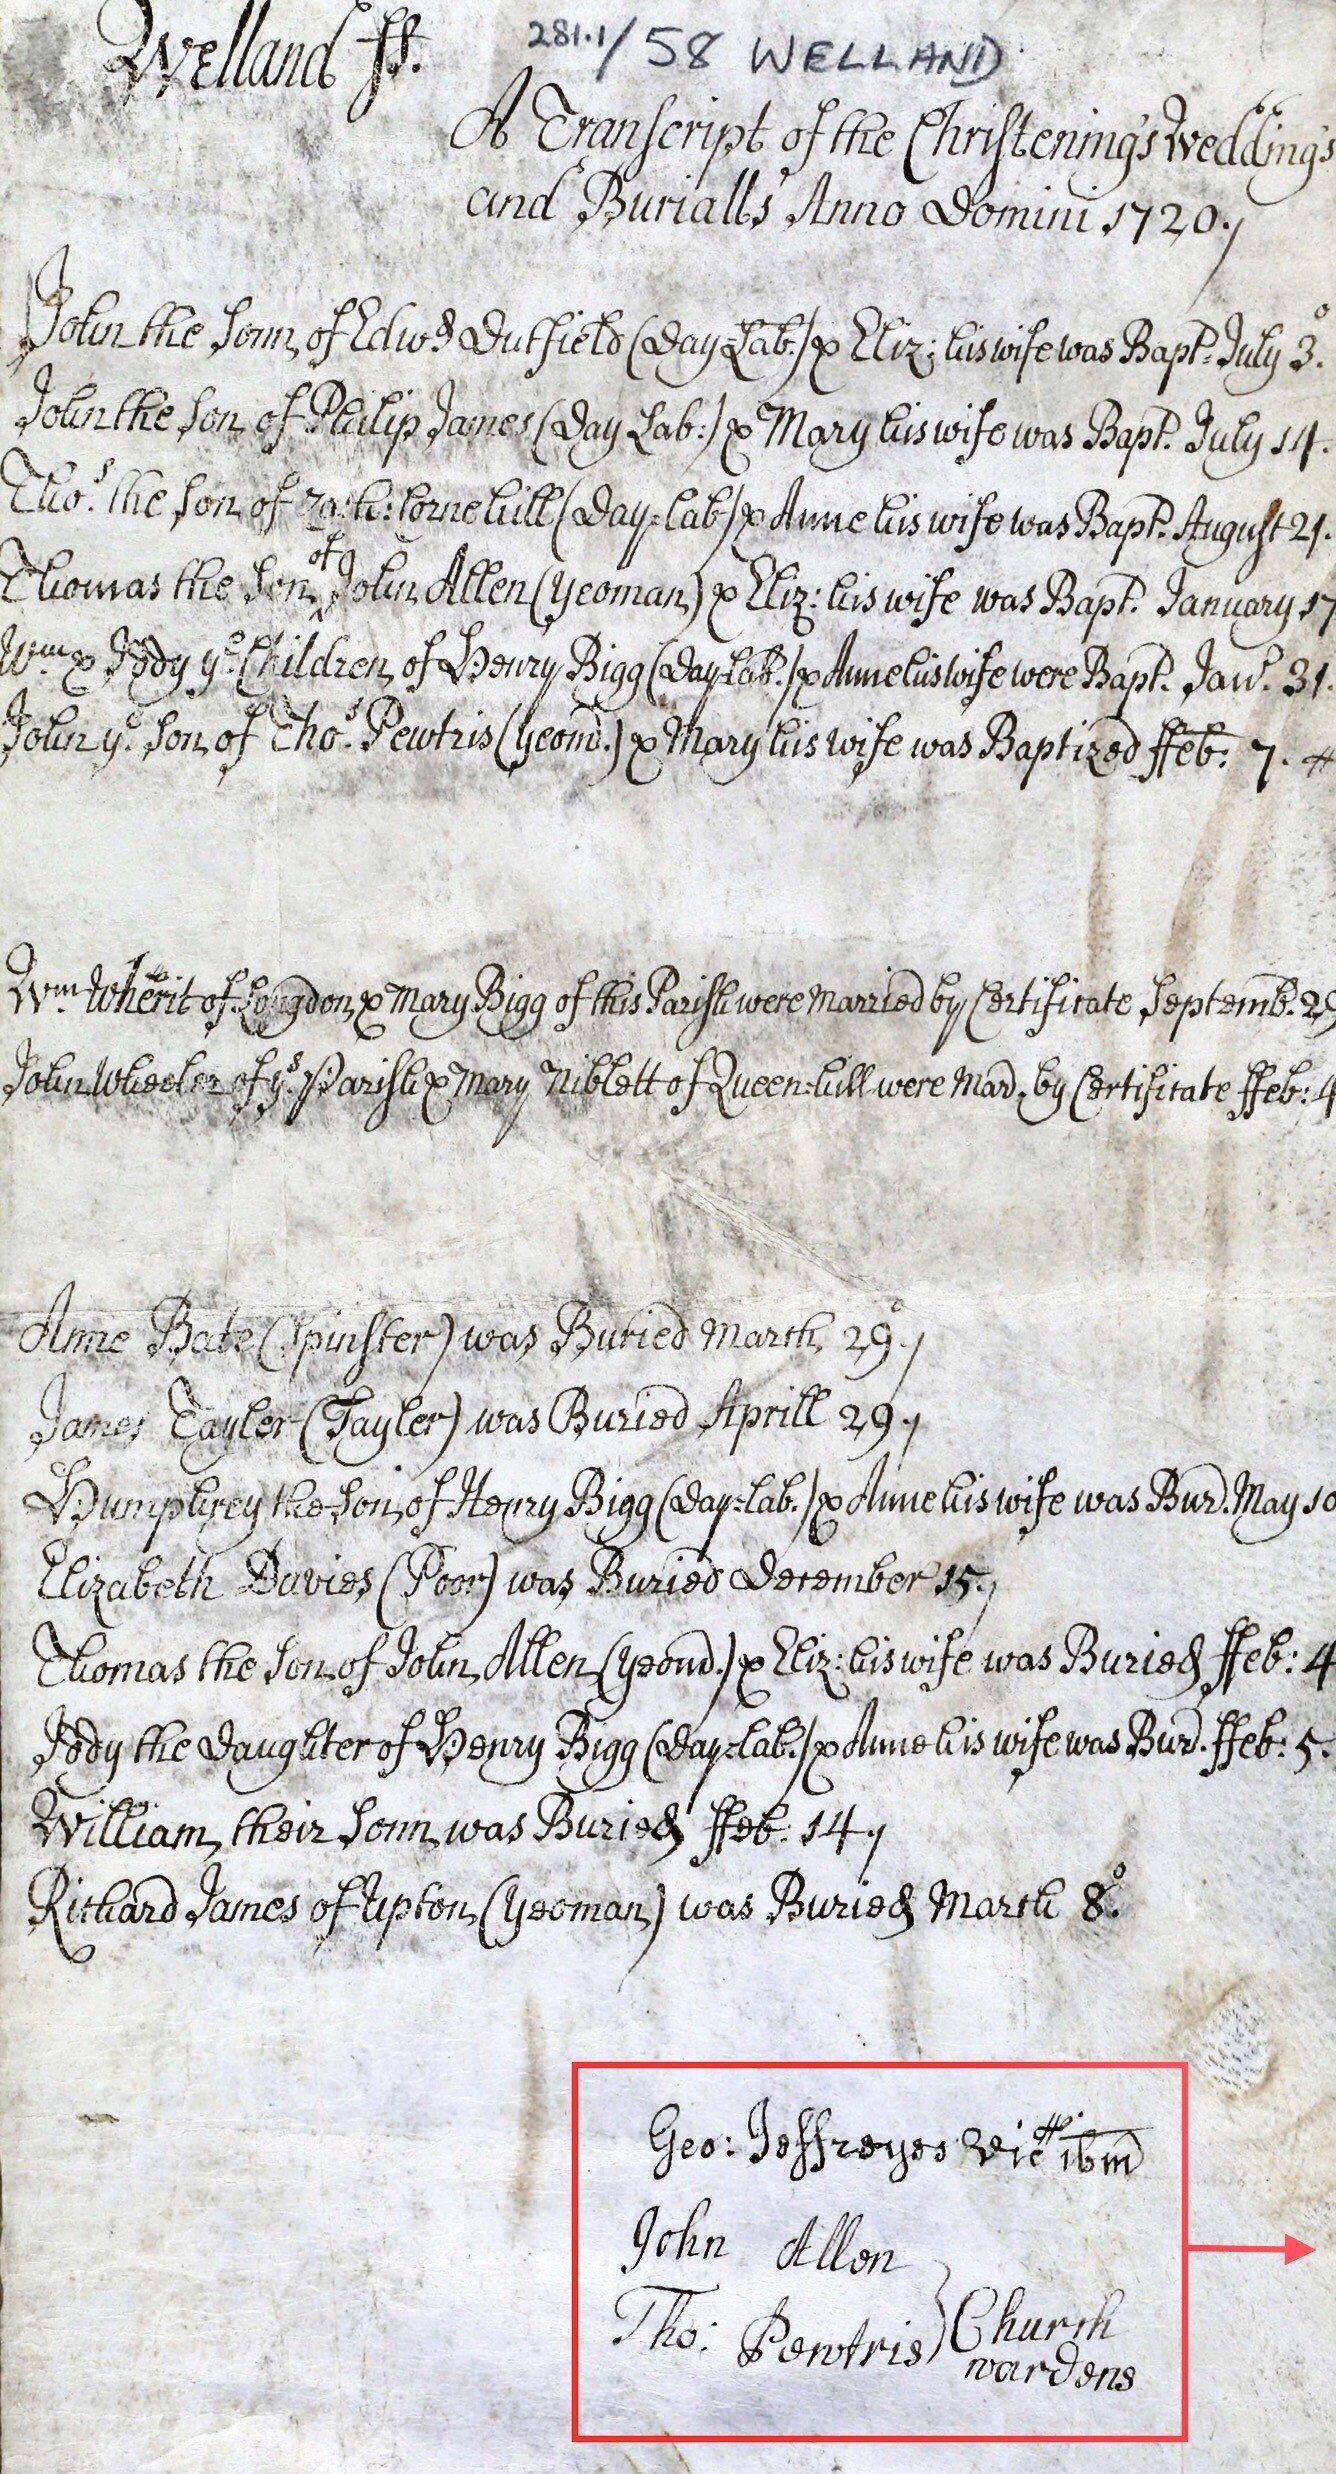 Welland ss.
281.1/58 WELLAND
A Transcript of the Christening's Wedding's
and Buriall's Anno Domini 1720./
John the Sonn of Edwd Dutfield (Day-Lab:) & Eliz: his wife was Bapt: July 3.o
John the Son of Philip James (Day Lab:) & Mary his wife was Bapt. July 14.
Tho.s the Son of Cornehill (Day=lab) & Anne his wife was Bapt. August 21.
Thomas the Son of John Allen (Yeoman) & Eliz: his wife was Bapt. January 17
Wm & Jody ye Children of Henry Bigg (Day Lab.) & Anne his wife were Bapt. Jan.y 31.
John ye Son of Tho.s Pewtris (Yeom.) & Mary his wife was Baptized ffeb: 7.
Wm Wherit of Longdon & Mary Bigg of this Parish were Married by Certificate Septemb. 29
John Wheeler of ys Parish & Mary Niblett of Queen-hill were Mard. by Certificate ffeb: 4
Anne Bate (Spinster) was Buried March 29.o/
James Tayler (Tayler) was Buried Aprill 29./
Humphrey the Son of Henry Bigg (Day=lab.) & Anne his wife was Bur.d May 10
Elizabeth Davies (Poor) was Buried December 15./
Thomas the Son of John Allen (Yeom.) & Eliz: his wife was Buried ffeb: 4
Jody the Daughter of Henry Bigg (Day=lab.) & Anne his wife was Burd. ffeb: 5.
William their Sonn was Buried ffeb: 14./
Richard James of Upton (Yeoman) was Buried March 8.o
Geo: Jeffreyes Vic ibm
John Allen
Tho: Pewtris } Church
wardens